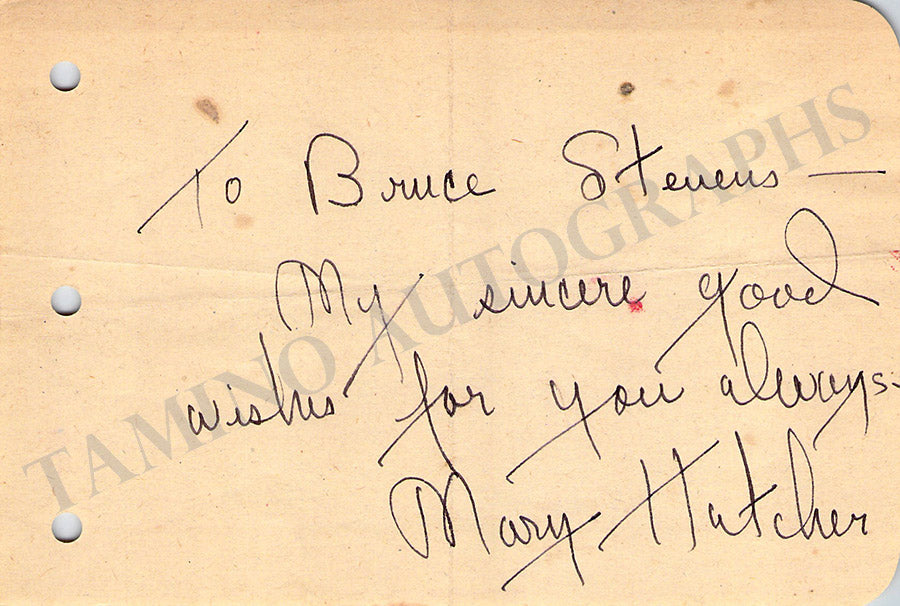 To Bruce Stevens —
My sincere good
wishes for you always-
Mary Hatcher
TAMINO AUTOGRAPHS